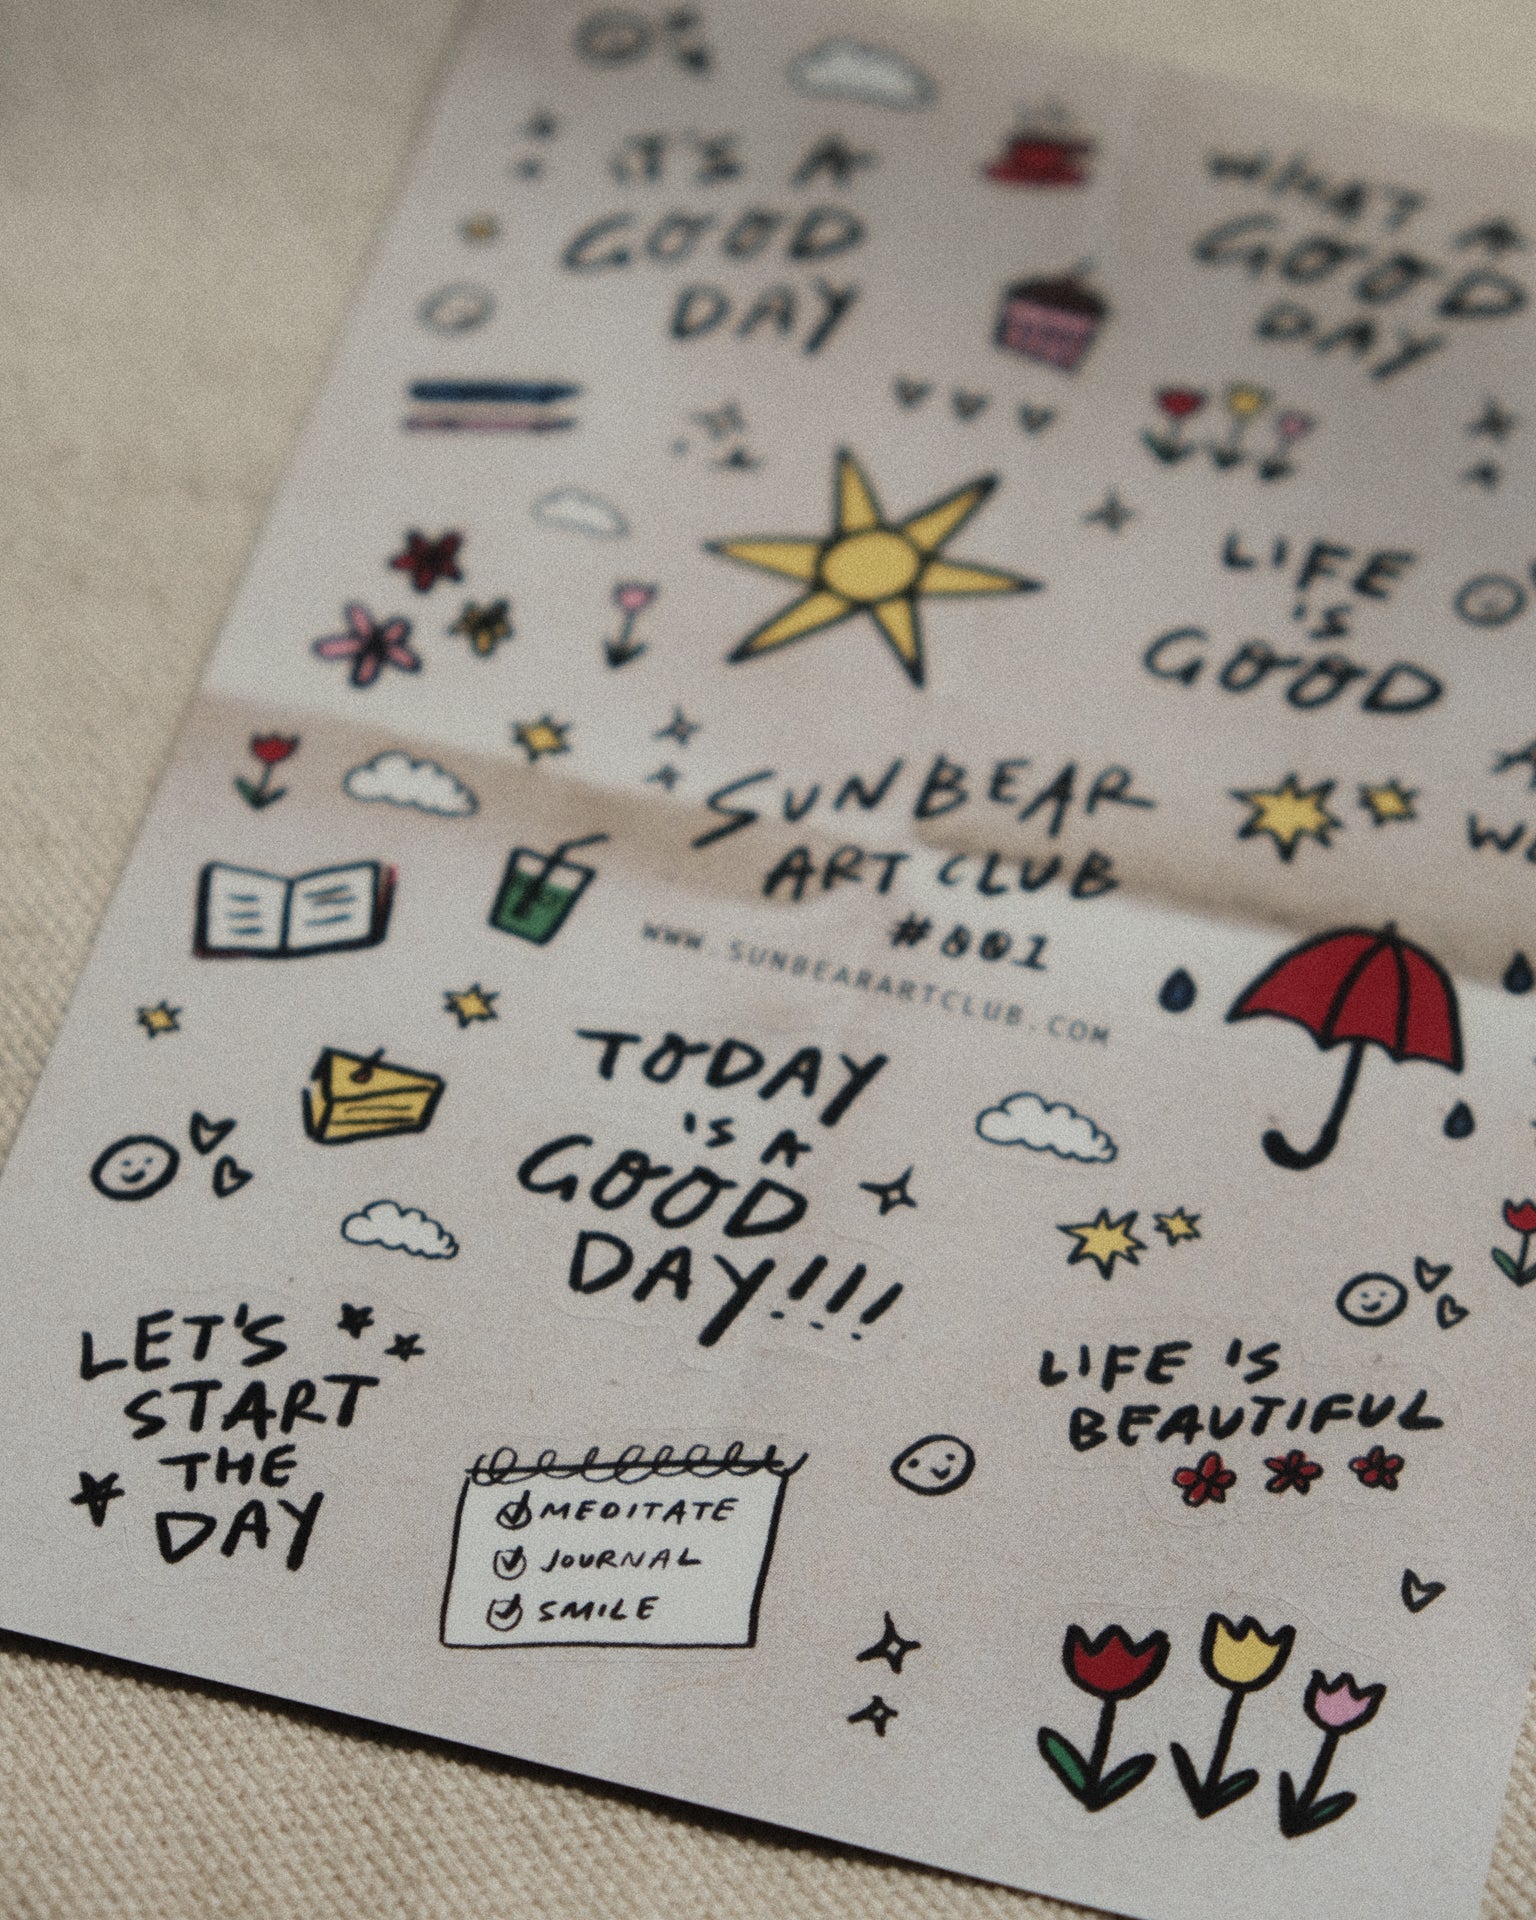 IT'S A
GOOD
DAY
WHAT A
GOOD
DAY
LIFE
IS
GOOD
SUNBEAR
ART CLUB
#001
WWW.SUNBEARARTCLUB.COM
TODAY
IS A
GOOD
DAY!!!
LET'S
START
THE
DAY
LIFE IS
BEAUTIFUL
MEDITATE
JOURNAL
SMILE